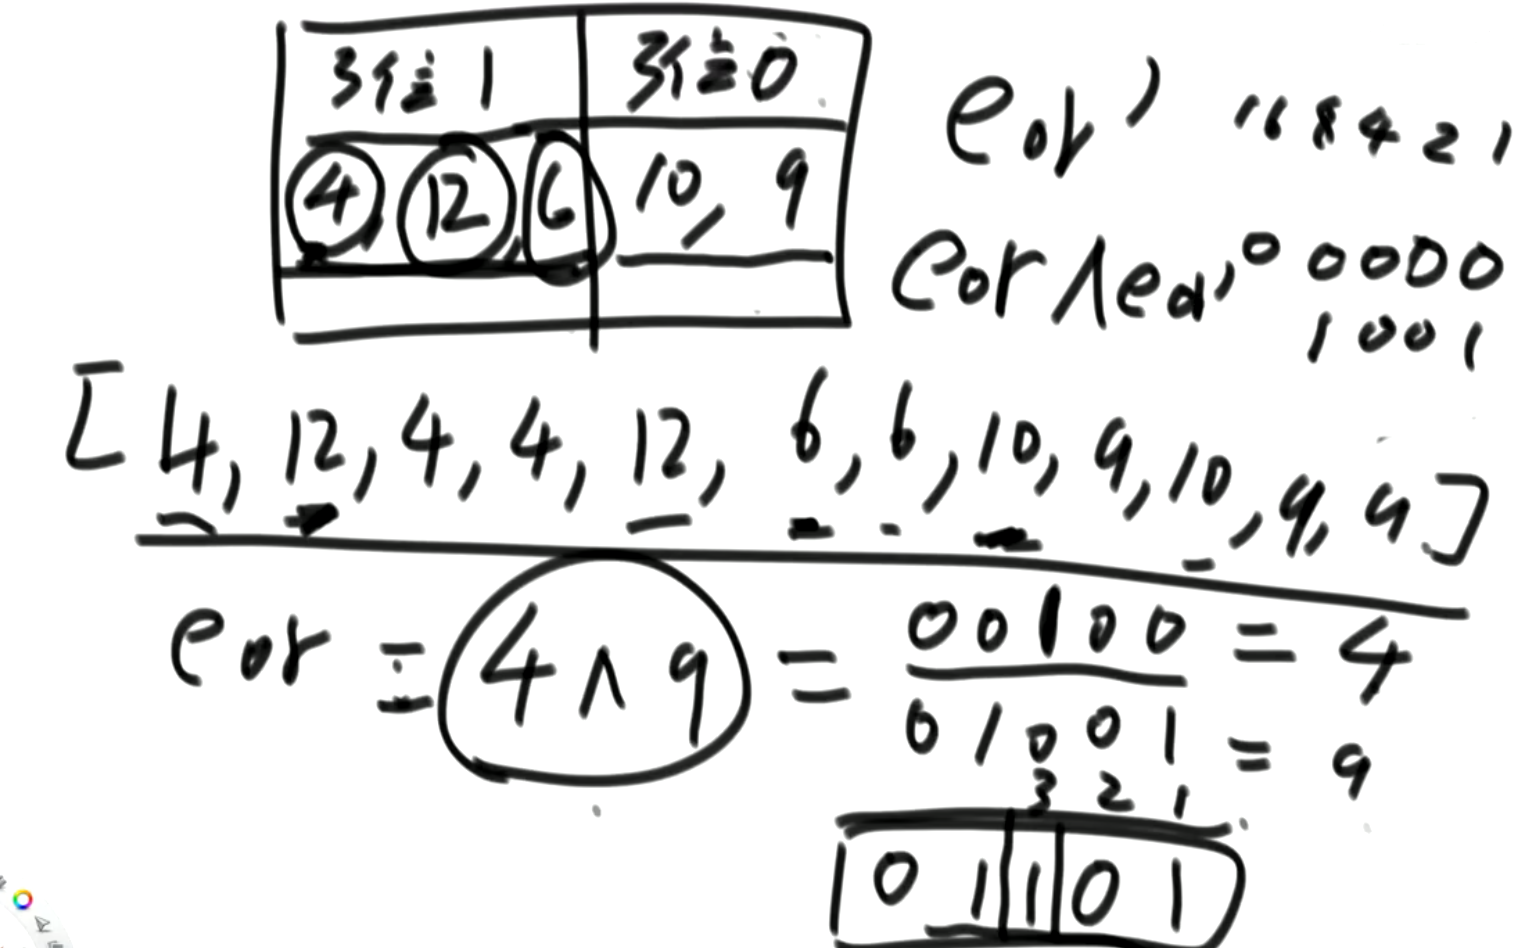 3位是1 3位是0
4, 12, 6 10, 9
eor' 16 8 4 2 1
eor ∧ eor' 0 0 0 0 0
1 0 0 1
[4, 12, 4, 4, 12, 6, 6, 10, 9, 10, 9, 9]
eor = 4 ∧ 9 = 0 0 1 0 0 = 4
0 1 0 0 1 = 9
3 2 1
0 1 1 0 1